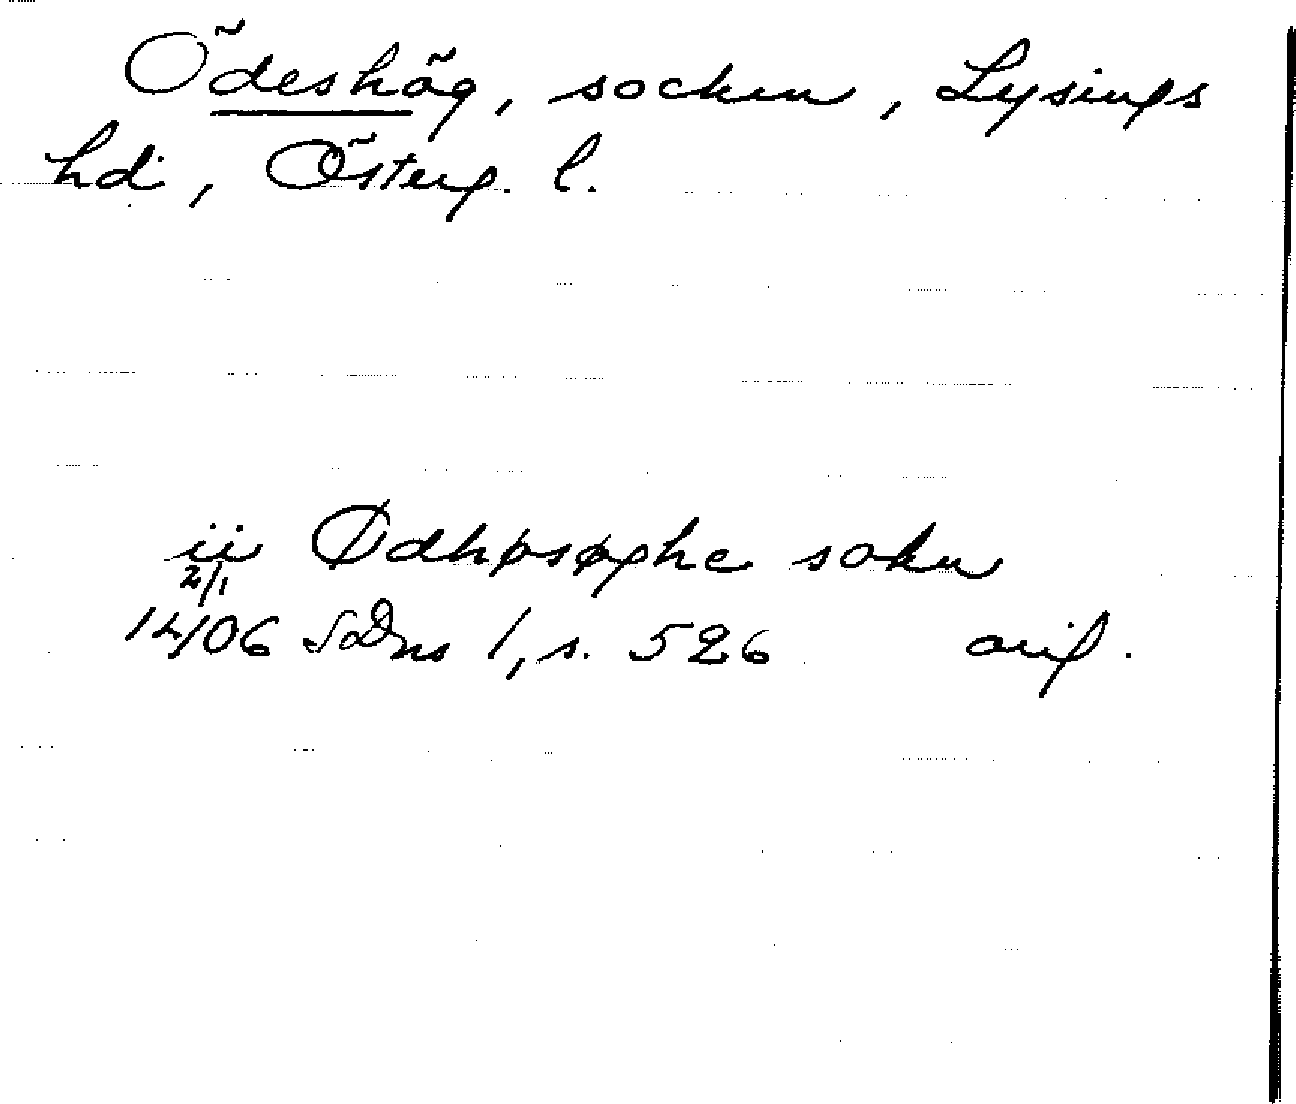 Ödeshög, socken, Lysings
hd, Österg. l.
ii Ødhøsøghe sokn
2/1
1406 SDns 1, s. 526 orig.